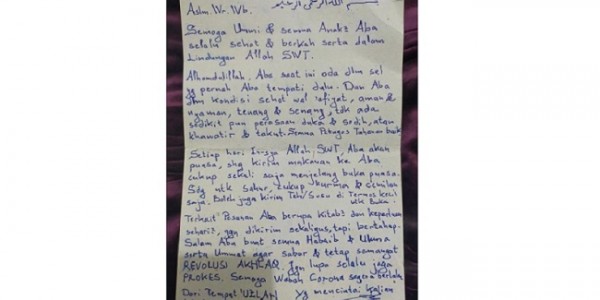 بسم الله الرحمن الرحيم
Aslm. Wr. Wb.
Semoga Ummi & semua Anak2 Aba
selalu sehat & berkah serta dalam
Lindungan Allah SWT.
Alhamdulillah, Aba saat ini ada dlm sel
yg pernah Aba tempati dulu. Dan Aba
dlm kondisi sehat wal 'afiyat, aman &
nyaman, tenang & senang, tdk ada
sedikit pun perasaan duka & sedih, atau
khawatir & takut. Semua Petugas Tahanan baik
Setiap hari Insya Allah SWT, Aba akan
puasa, shg kirim makanan ke Aba
cukup sekali saja menjelang buka puasa.
Sdg utk sahur, cukup kurma & cemilan
saja. Boleh juga kirim Teh/Susu di Termos kecil
utk Buka.
Terkait Pesanan Aba berupa kitab2 dan keperluan
sehari2, dikirim sekaligus, tapi bertahap.
Salam Aba buat semua Habaib & Ulama
serta Ummat agar sabar & tetap semangat
REVOLUSI AKHLAQ. Jgn lupa selalu jaga
PROKES. Semoga Wabah Corona segera berlalu.
Dari Tempat 'UZLAH yg mencintai Kalian